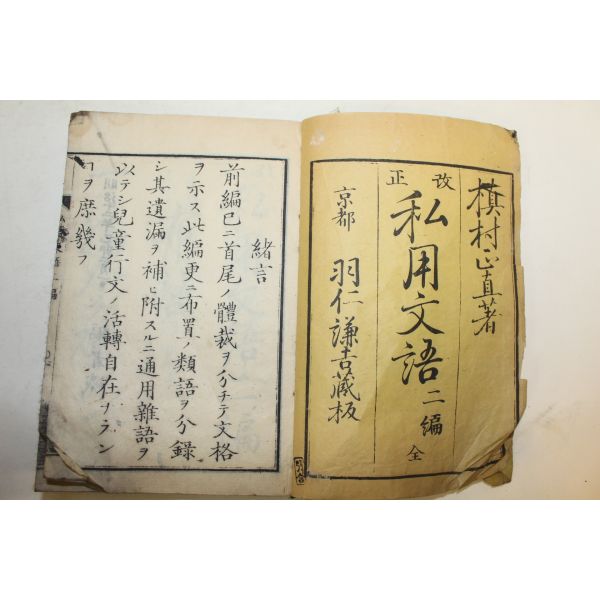 槙村正直著
改正
私用文語二編全
京都 羽仁謙吉蔵板
緒言
前編已ニ首尾ノ體裁ヲ分チテ文格
ヲ示ス此編更ニ布置ノ類語ヲ分録
シ其遺漏ヲ補ヒ附スルニ通用雜語ヲ
以テシ兒童行文ノ活轉自在ナラン
ヿヲ庶幾フ